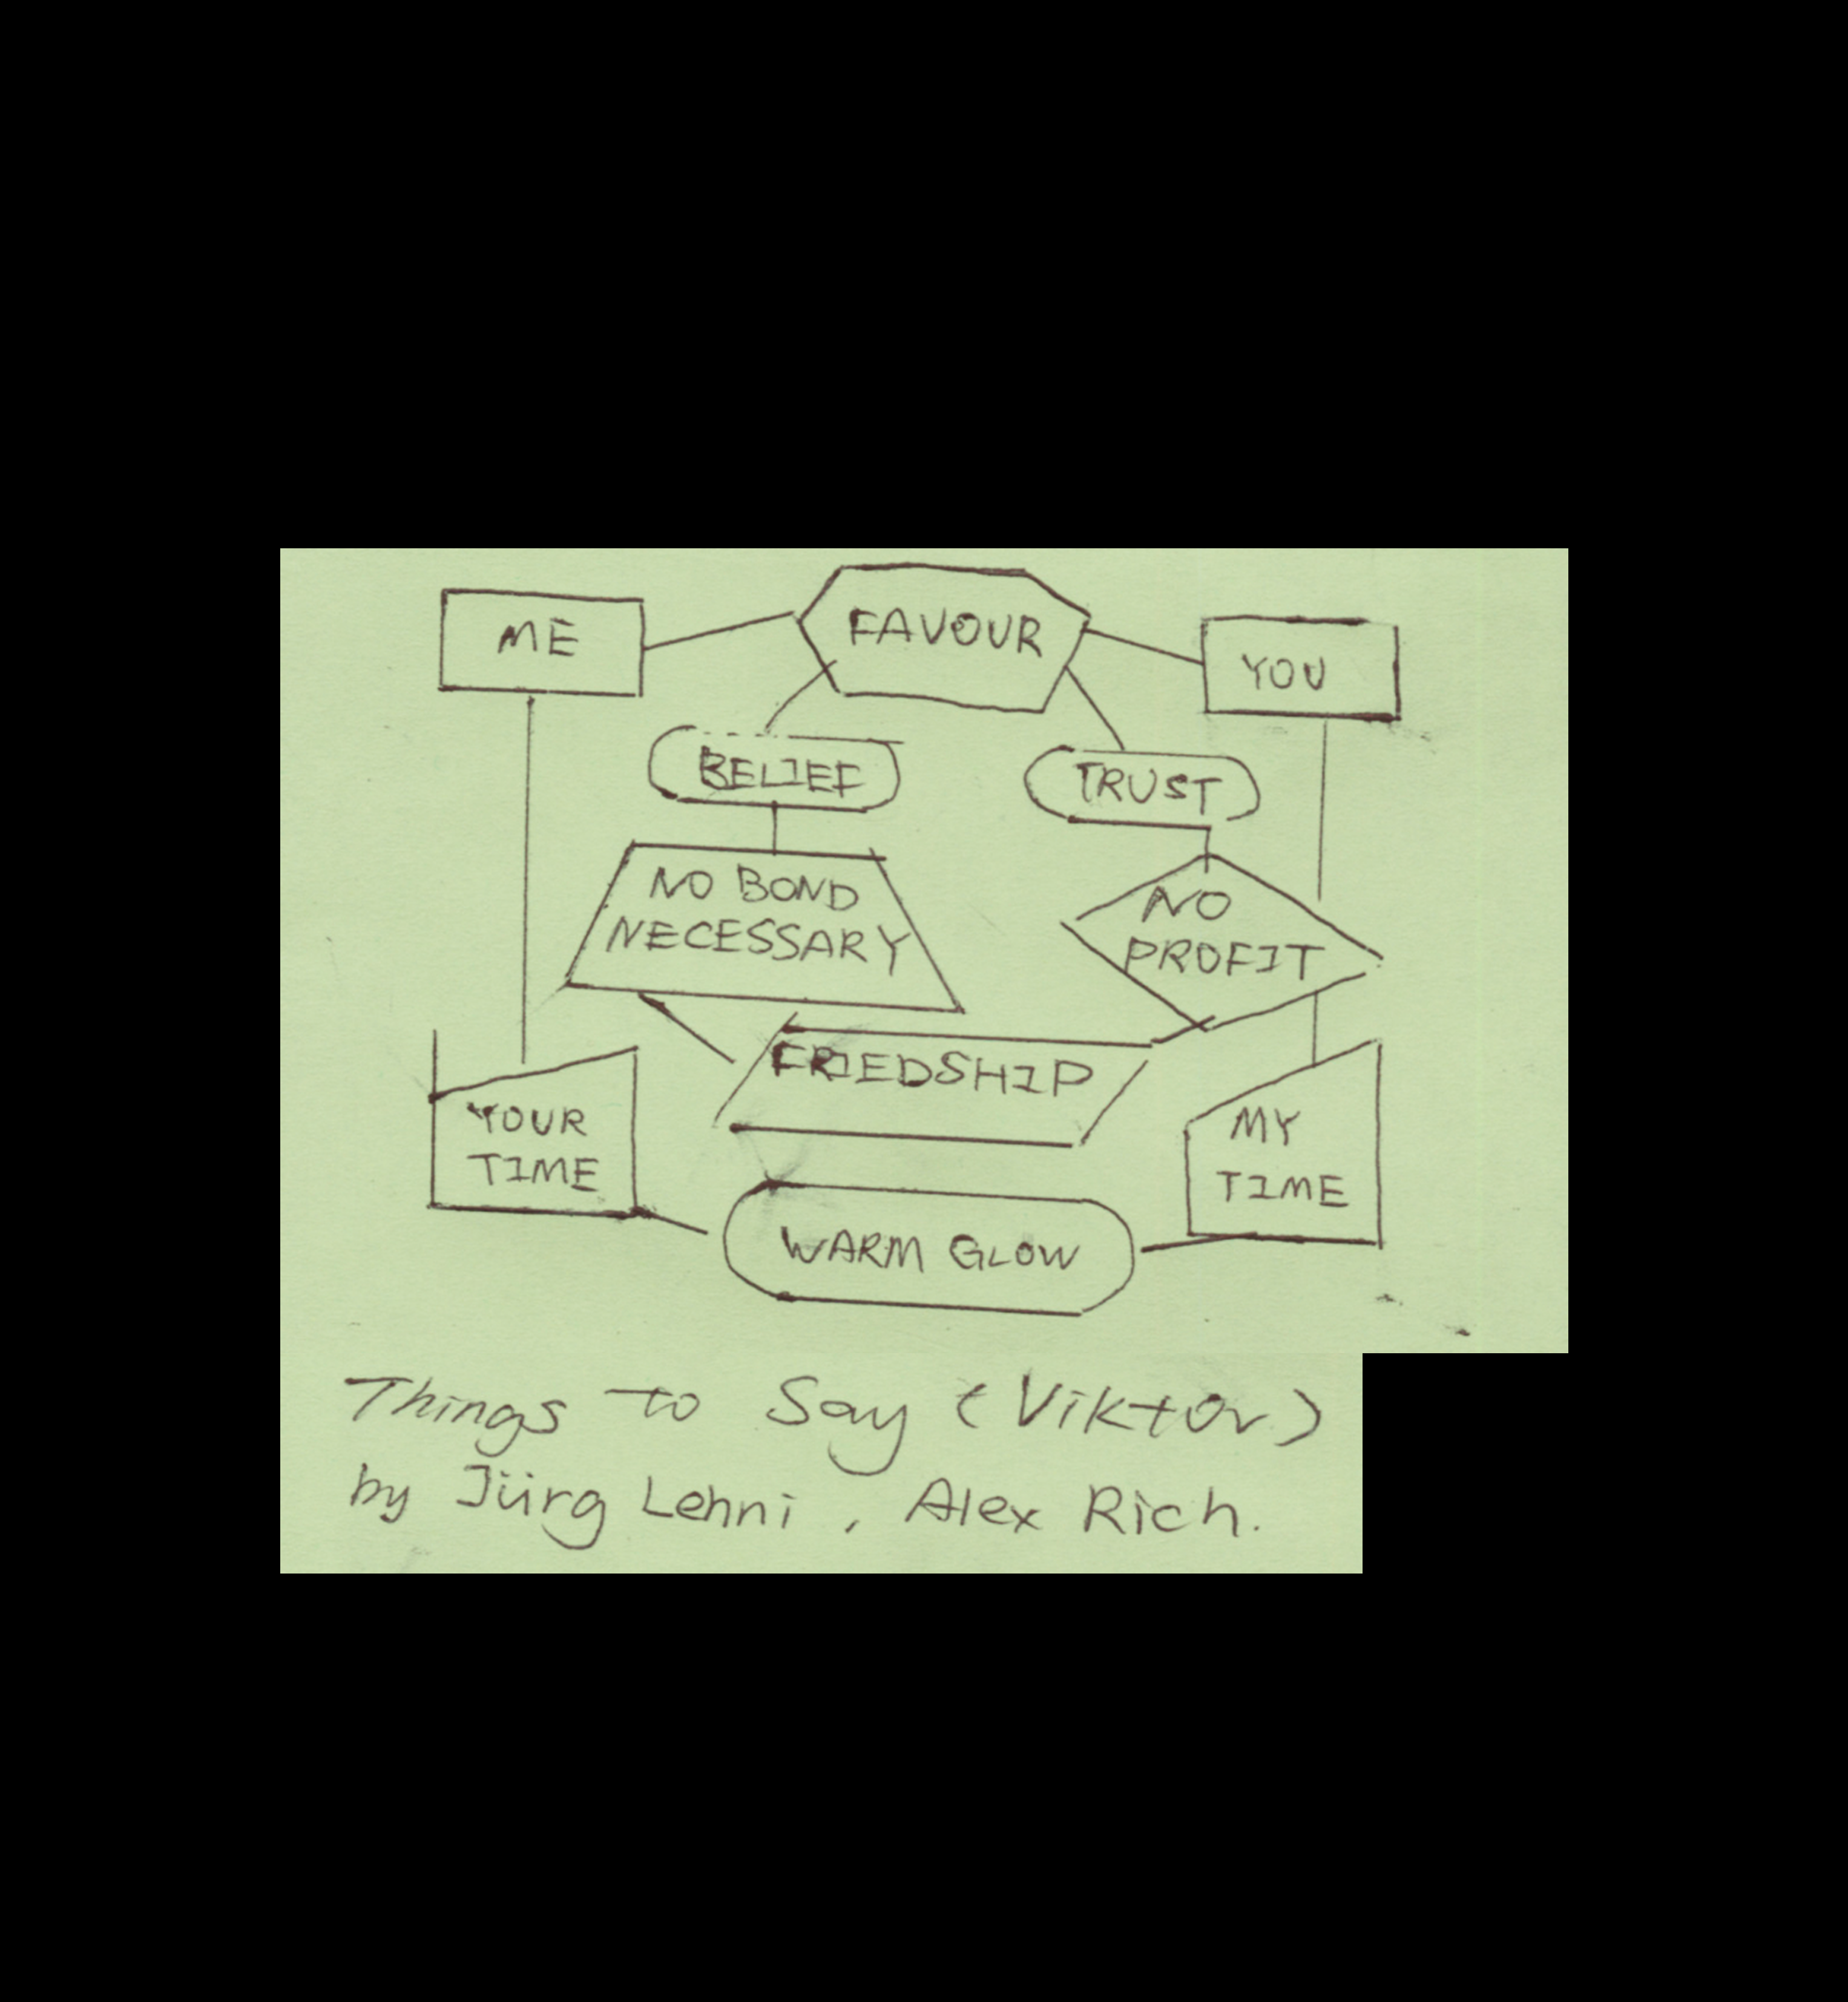 ME
FAVOUR
YOU
BELIEF
TRUST
NO BOND
NECESSARY
NO
PROFIT
FRIEDSHIP
YOUR
TIME
MY
TIME
WARM GLOW
Things to Say (Viktor)
by Jürg Lehni, Alex Rich.